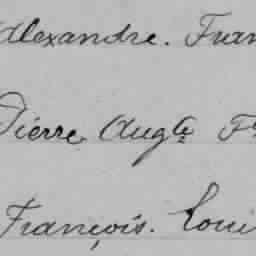 Alexandre. Fran
Pierre Augte F
François. Loui